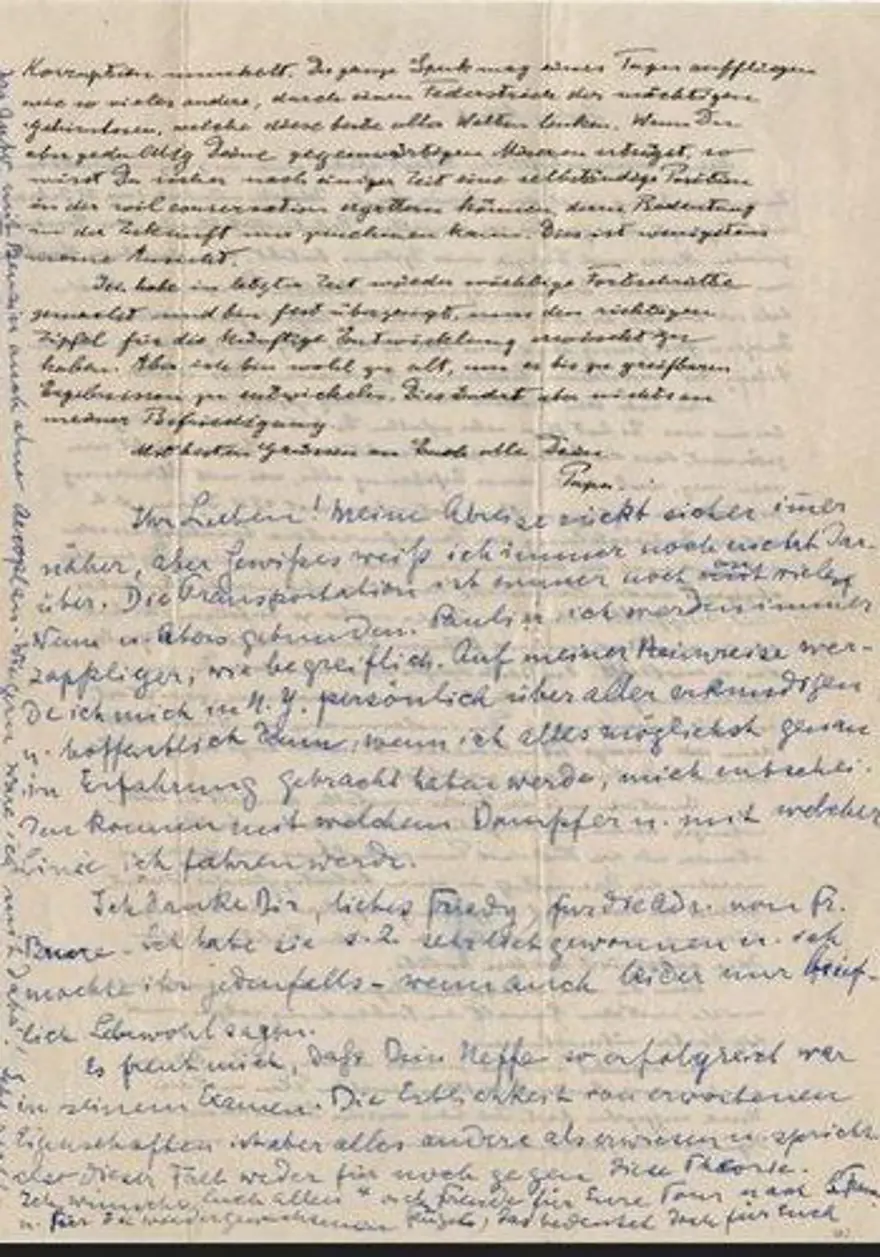 Korruption munkelt. Der ganze Spuk mag eines Tages auffliegen
wie so vieles andere, durch einen Federstrich der mächtigen
Gehirnlosen, welche diese beste aller Welten lenken. Wenn Du
aber geduldig Deine gegenwärtigen Miseren erträgst, so
wirst Du sicher nach einiger Zeit eine selbständige Position
in der soil conservation ergattern können, deren Bedeutung
in der Zukunft nur zunehmen kann. Dies ist wenigstens
meine Ansicht.
Ich habe in letzter Zeit wieder wichtige Fortschritte
gemacht und bin fest überzeugt, nun den richtigen
Zipfel für die künftige Entwicklung erwischt zu
haben. Aber ich bin wohl zu alt, um es bis zu greifbaren
Ergebnissen zu entwickeln. Dies ändert aber nichts an
meiner Befriedigung.
Mit besten Grüssen an Euch alle Dein
Papa.
Ihr Lieben! Meine Abreise rückt sicher imer
näher, aber Gewißes weiß ich immer noch nicht dar-
über. Die Transportation ist immer noch mit vielen
Wenn u. Abers gebunden. Pauli u. ich werden immer
zappliger, wie begreiflich. Auf meiner Heimreise wer-
de ich mich in N. Y. persönlich über alles erkundigen
u. hoffentlich dann, wenn ich alles möglichst genau
in Erfahrung gebracht haben werde, mich entschei-
den können mit welchem Dampfer u. mit welcher
Linie ich fahren werde.
Ich danke Dir, liebes Friedy, für die Adr. von Fr.
Ich habe sie s. Z. gewonnen u. ich
möchte ihr jedenfalls – wenn auch leider nur brief-
lich Lebewohl sagen.
Es freut mich, daß Dein Neffe so erfolgreich war
in seinem Examen. Die Erblichkeit von erworbenen
Eigenschaften ist aber alles andere als erwiesen u. spricht
also dieser Fall weder für noch gegen diese Theorie.
Ich wünsche Euch allen viel Freude für Eure Tour nach
u. für die wiedergewonnenen das bedeutet doch für Euch
auch ohne Aeroplan. Wie gern wäre ich mit dabei!